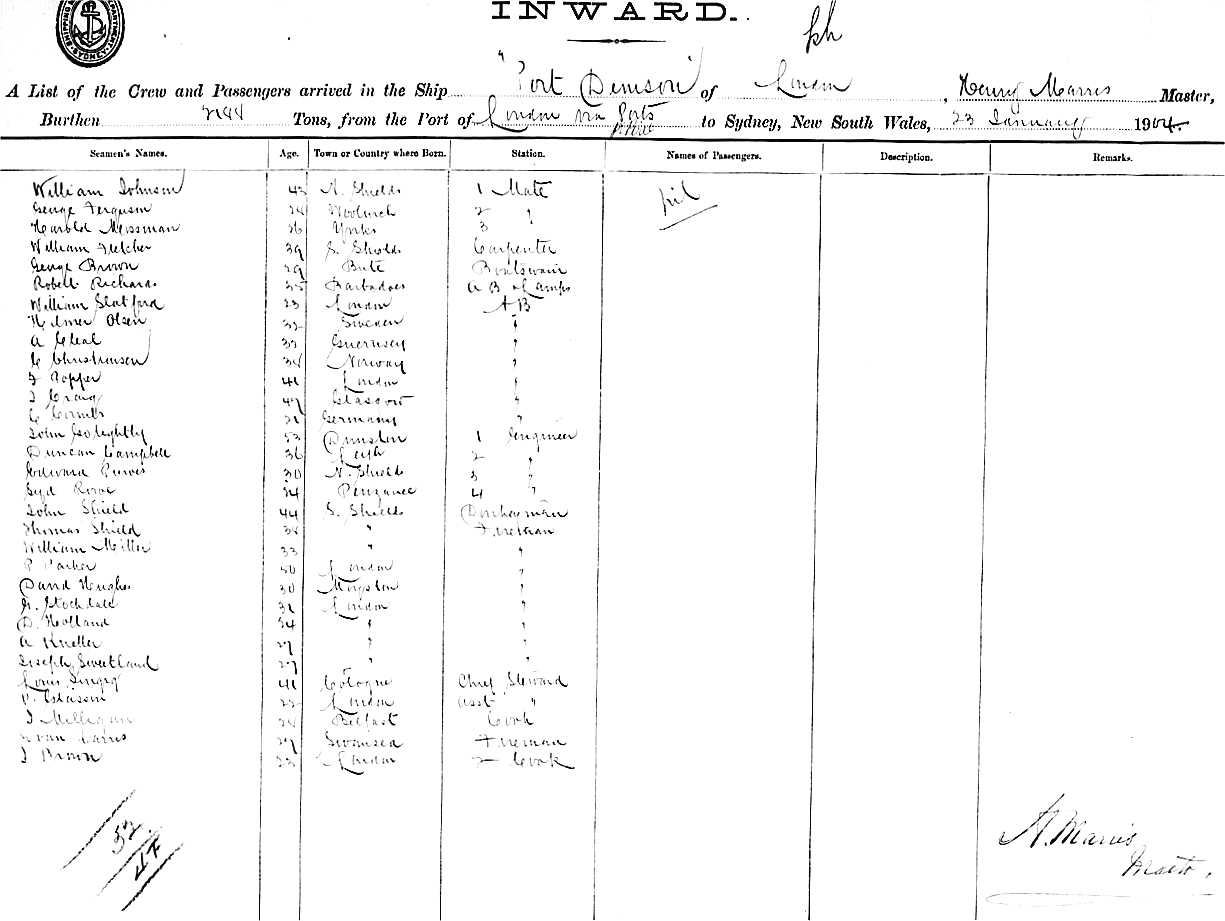 INWARD.
A List of the Crew and Passengers arrived in the Ship "Port Denison" of London, Henry Marris Master,
Burthen Tons, from the Port of London via Ports to Sydney, New South Wales, 23 January 1904.
Seamen's Names. Age. Town or Country where Born. Station. Names of Passengers. Description. Remarks.
William Johnson 43 N. Shields 1 Mate nil
George Ferguson Woolwich 2 "
Harold Messman 26 Yorks 3 "
William Fletcher 39 S. Shields Carpenter
George Brown 29 Bute Boatswain
Robert Richards 35 Barbadoes A B & Lamps
William Slatford 23 London A B
Hilmer Olsen 32 Sweden "
A Cleal 33 Guernsey "
C Christensen 38 Norway "
F Popper 41 London "
J Craig 47 Glasgow "
C 21 Germany "
John Golightly 53 Dunston 1 Engineer
Duncan Campbell 36 Leith 2 "
Edward Purvis 30 N. Shields 3 "
Syd Rowe 24 Penzance 4 "
John Shield 44 S. Shields Donkeyman
Thomas Shield 38 " Fireman
William Miller 33 " "
P Parker 50 London "
David Hughes 30 Mostyn "
G. Stockdale 31 London "
D. Holland 24 " "
A Kneller 27 " "
Joseph Sweetland 27 " "
Louis Singeg 41 Cologne Chief Steward
22 London Asst "
J Milligan 28 Belfast Cook
Evan Harris 27 Swansea Fireman
J Brown 23 London 2 Cook
32
H. Marris
Master.